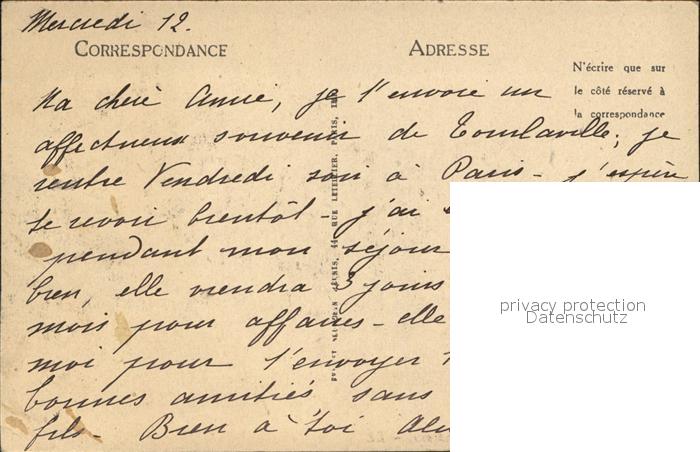 Mercredi 12.
CORRESPONDANCE
ADRESSE
N'écrire que sur
le côté réservé à
la correspondance
Ma chère Amie, je t'envoie un
affectueux souvenir de Tourlaville; je
rentre Vendredi soir à Paris - j'espère
te revoir bientôt - j'ai
pendant mon séjour
bien, elle viendra 3 jours
mois pour affaires - elle
moi pour t'envoyer
bonnes amitiés sans
fils - Bien à toi
44 RUE LETELLIER, PARIS
privacy protection
Datenschutz